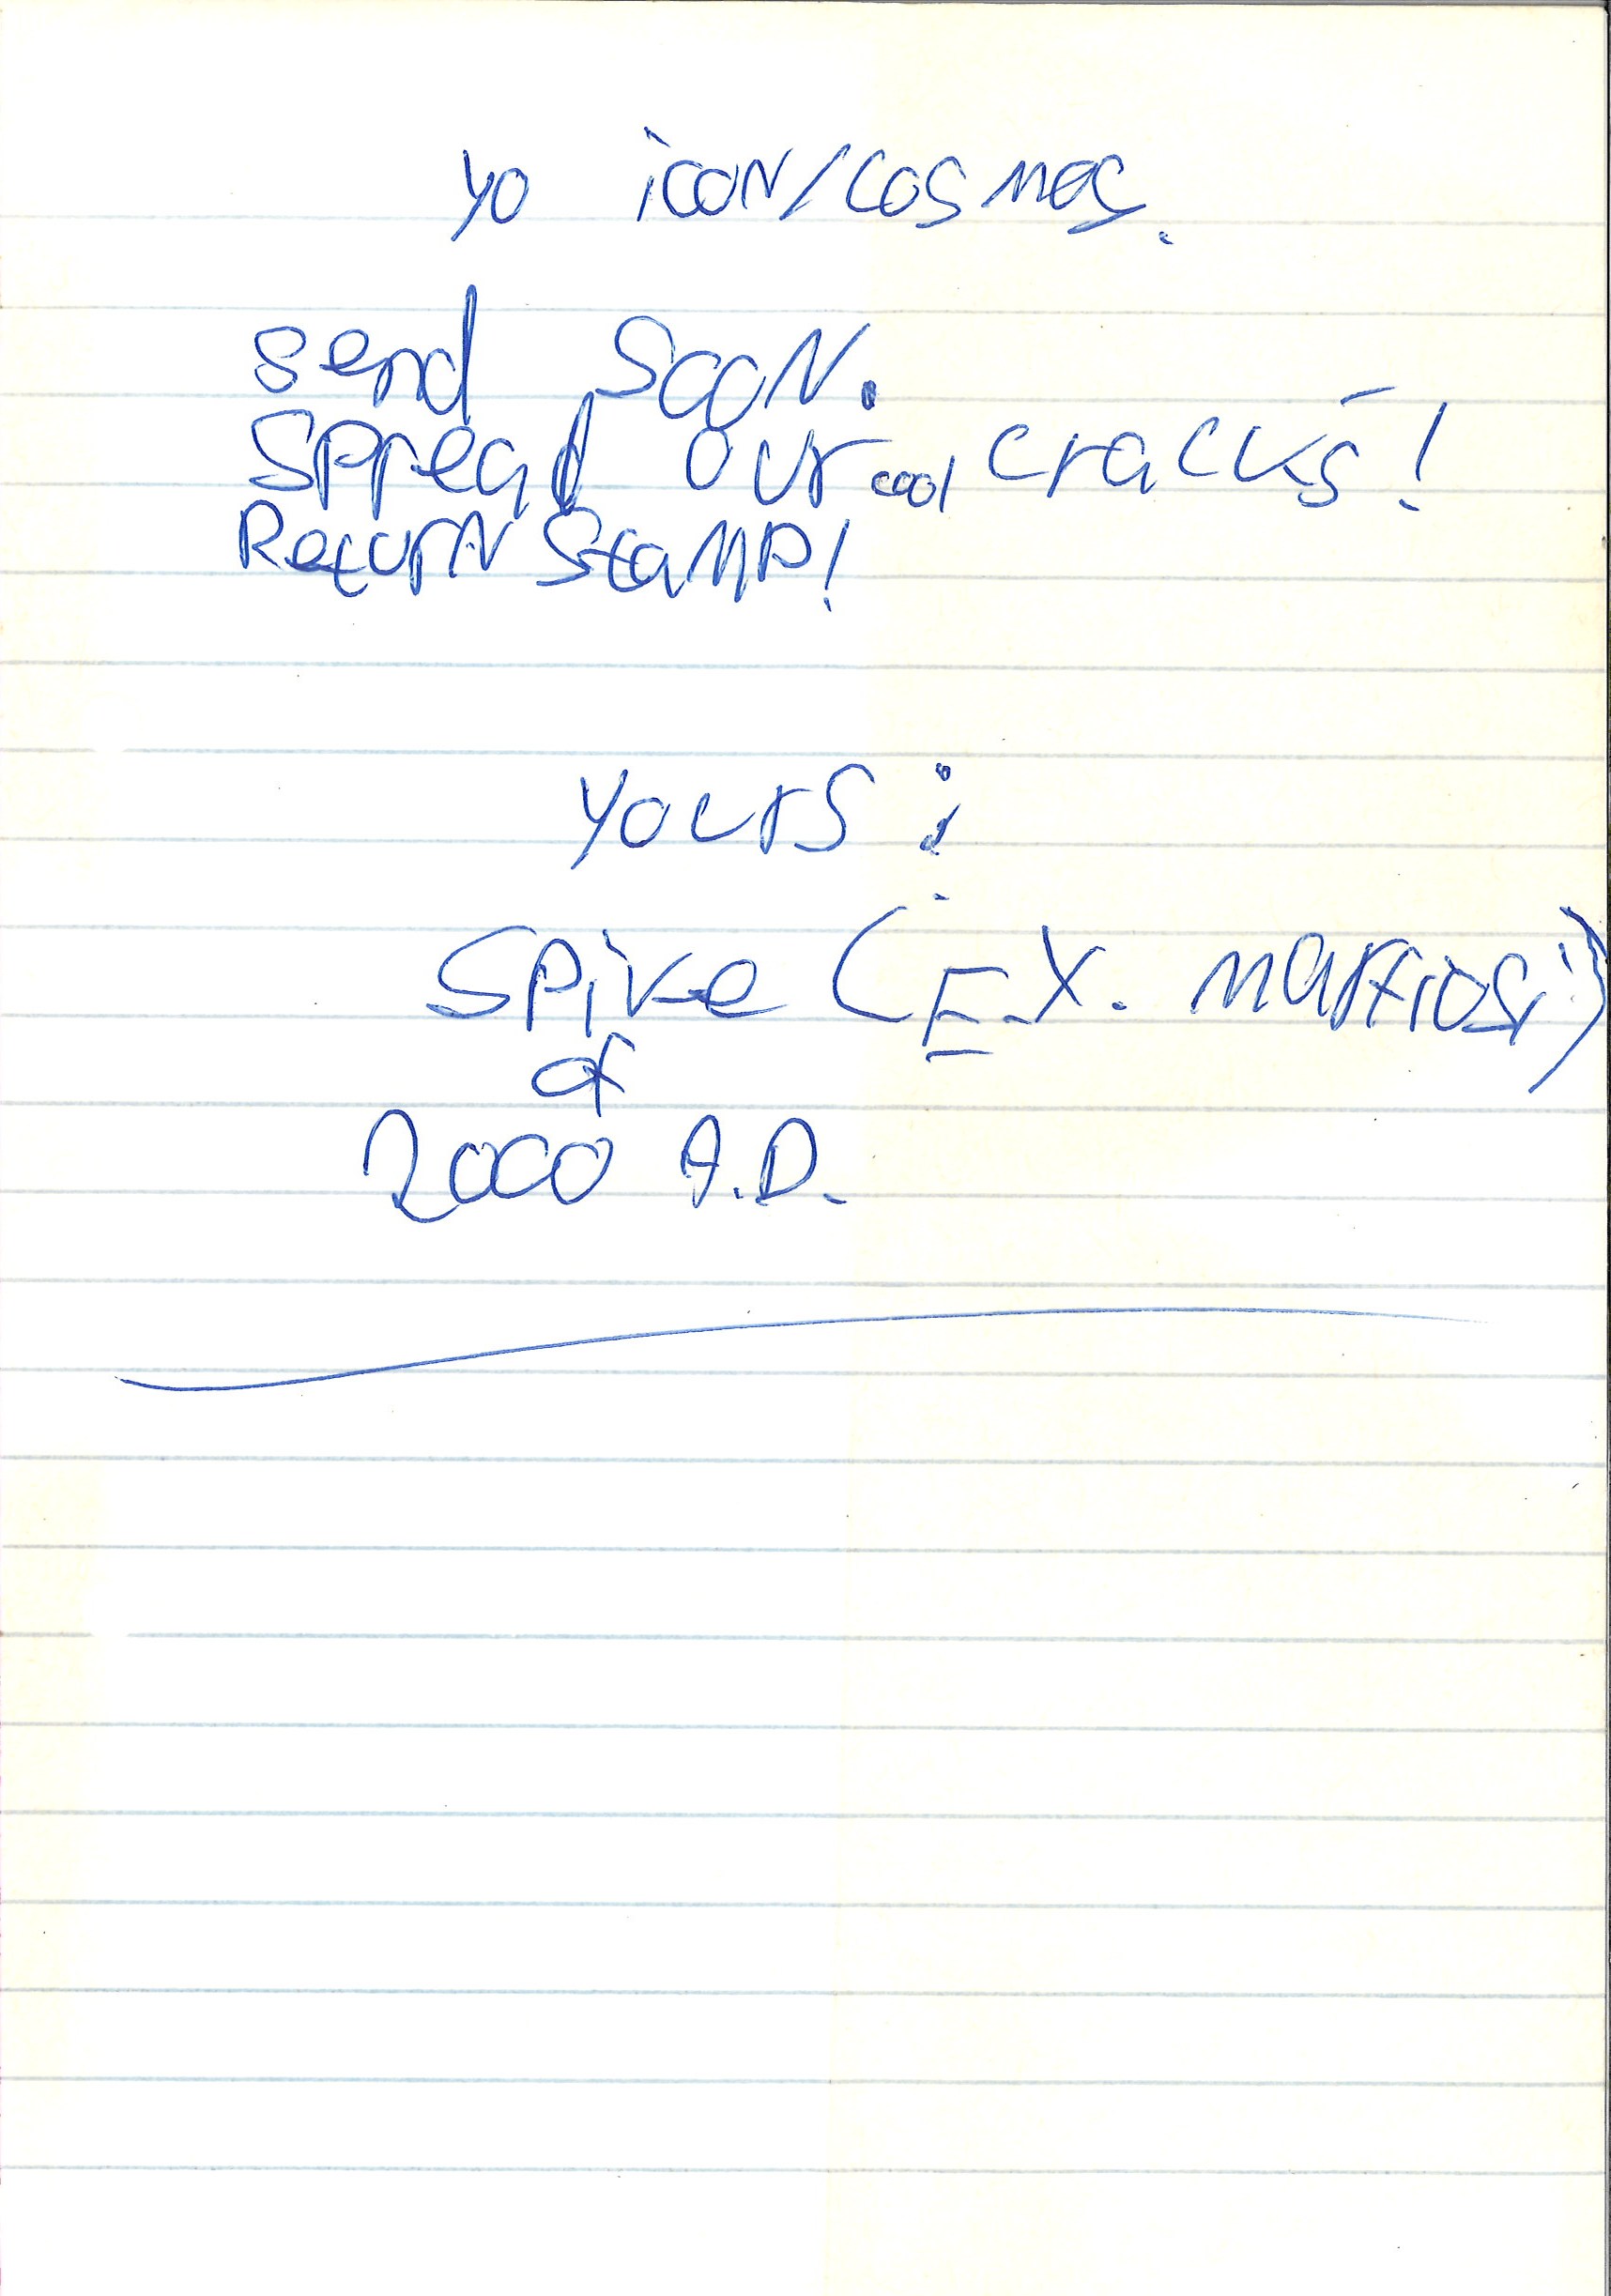 yo icon/cosmos.
send soon.
sppread our cool cracks!
Return stamp!
yours:
spike (EX. Martios!)
of
2000 A.D.